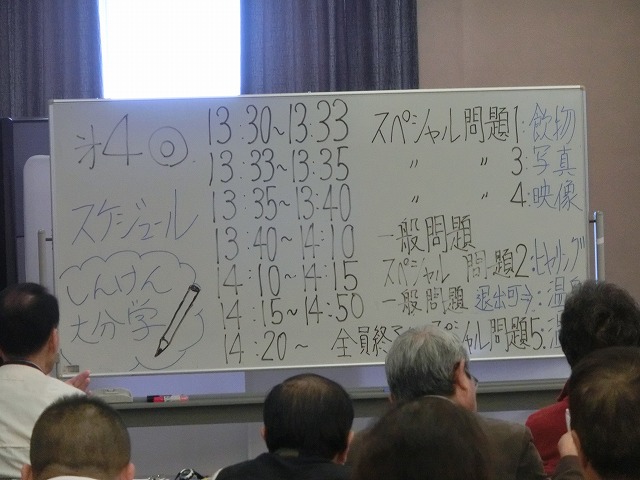 4 ◎
スケジュール
しんけん
大分学
13:30~13:33 スペシャル問題1:飲物
13:33~13:35 〃 〃 3:写真
13:35~13:40 〃 〃 4:映像
13:40~14:10 一般問題
14:10~14:15 スペシャル 問題2:ヒヤリング
14:15~14:50 一般問題 退出可⇒:温
14:20~ 全員終 スペシャル問題5: